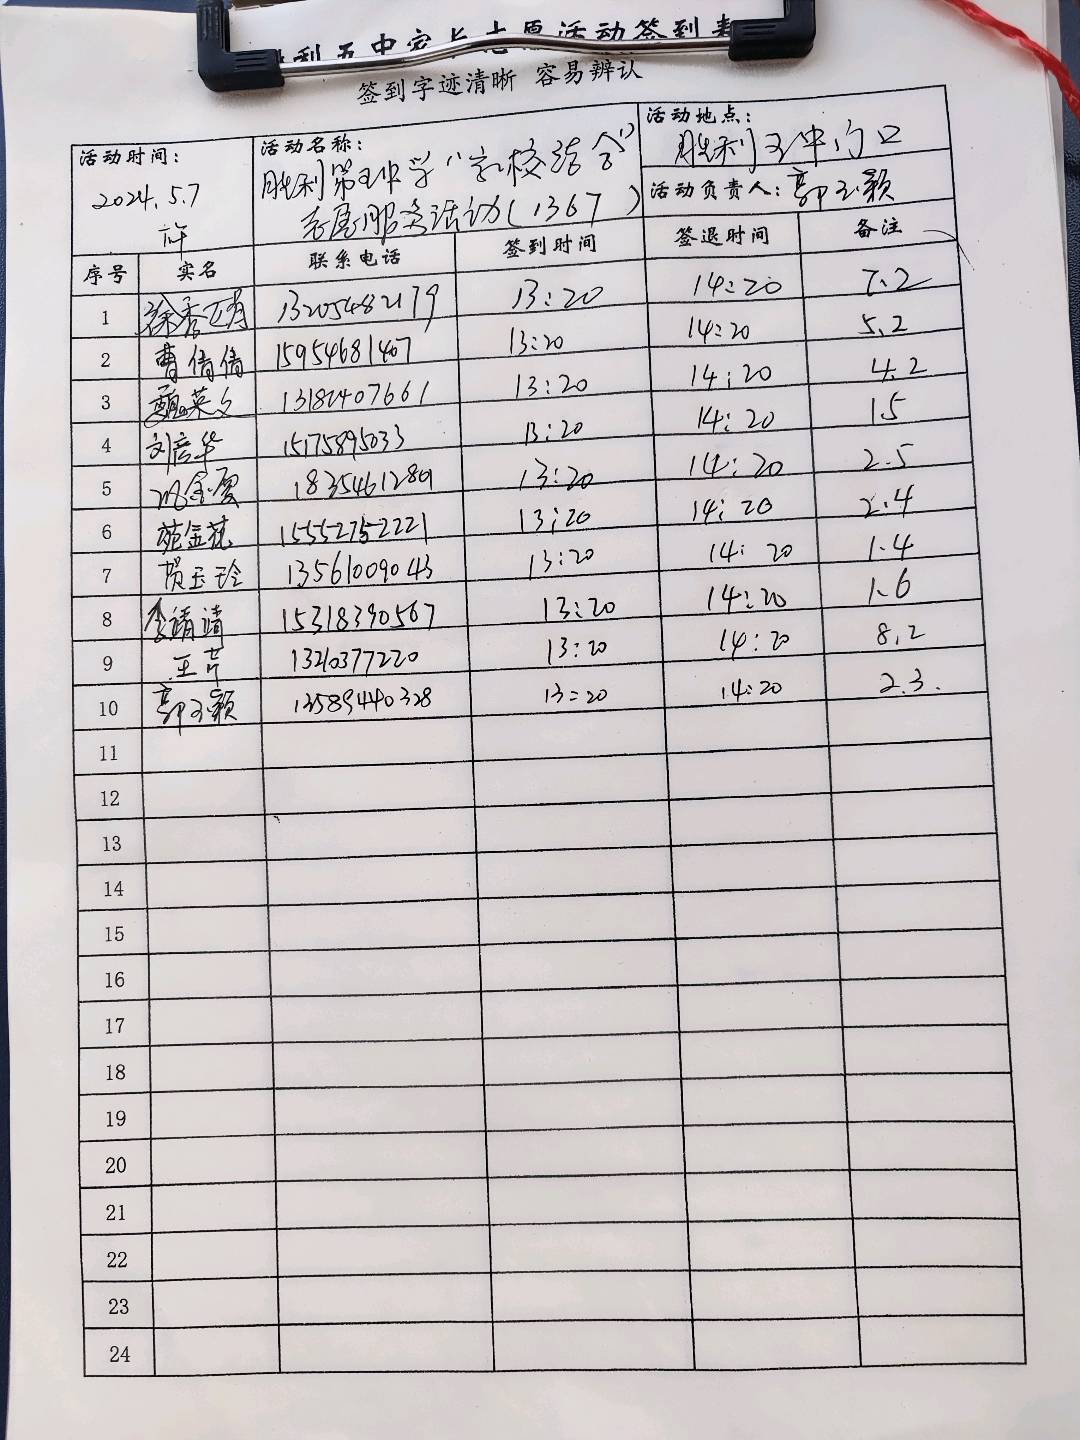 胜利五中家长志愿活动签到表
签到字迹清晰 容易辨认
活动时间：
2024.5.7
下午
活动名称：
胜利第五中学"家校结合"
志愿服务活动(1367)
活动地点：
胜利五中门口
活动负责人：郭玉颖
序号 实名 联系电话 签到时间 签退时间 备注
1 徐秀娟 13205482179 13:20 14:20 7.2
2 曹倩倩 15954681407 13:20 14:20 5.2
3 甄英文 13182407661 13:20 14:20 4.2
4 刘彦华 15175895033 13:20 14:20 1.5
5 18354612801 13:20 14:20 2.5
6 苑金花 15552752221 13:20 14:20 2.4
7 贺玉玲 13561009043 13:20 14:20 1.4
8 李靖靖 15318390567 13:20 14:20 1.6
9 王芹 13210377220 13:20 14:20 8.2
10 郭玉颖 13589440328 13:20 14:20 2.3.
11
12
13
14
15
16
17
18
19
20
21
22
23
24